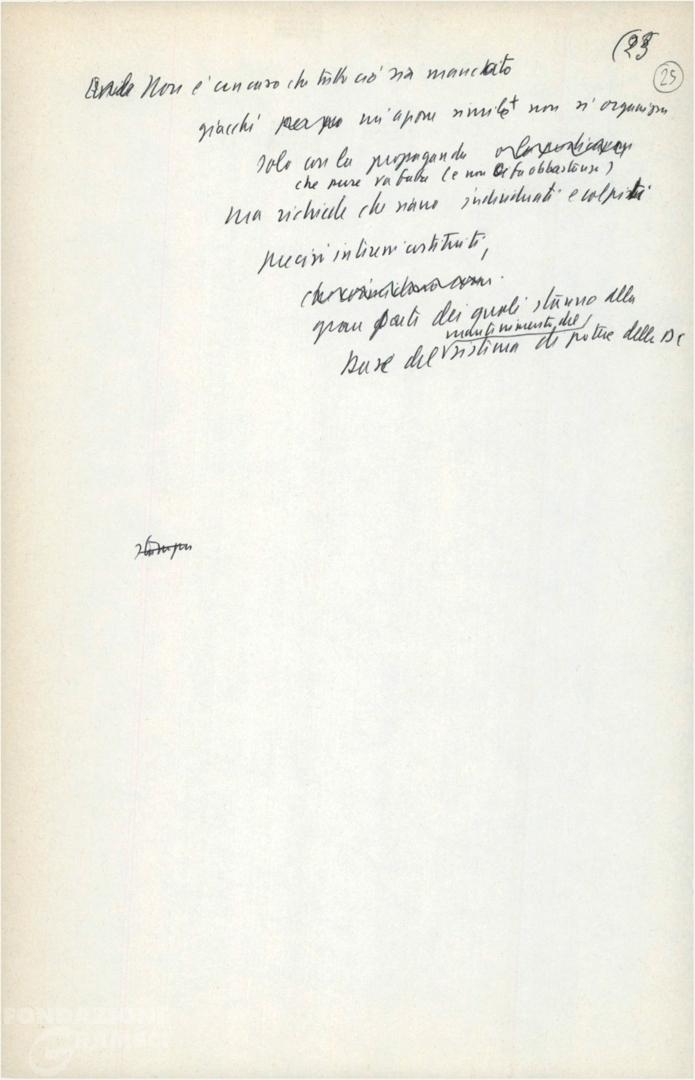 (23
25
Non è un caso che tutto ciò sia mancato
giacché un'azione simile non si organizza
solo con la propaganda
che pure va fatta (e non si fa abbastanza)
ma richiede che siano individuati e colpiti
precisi interessi costituiti,
gran parte dei quali stanno alla
mantenimento del
base del sistema di potere della DC
stampa
FONDAZIONE
GRAMSCI